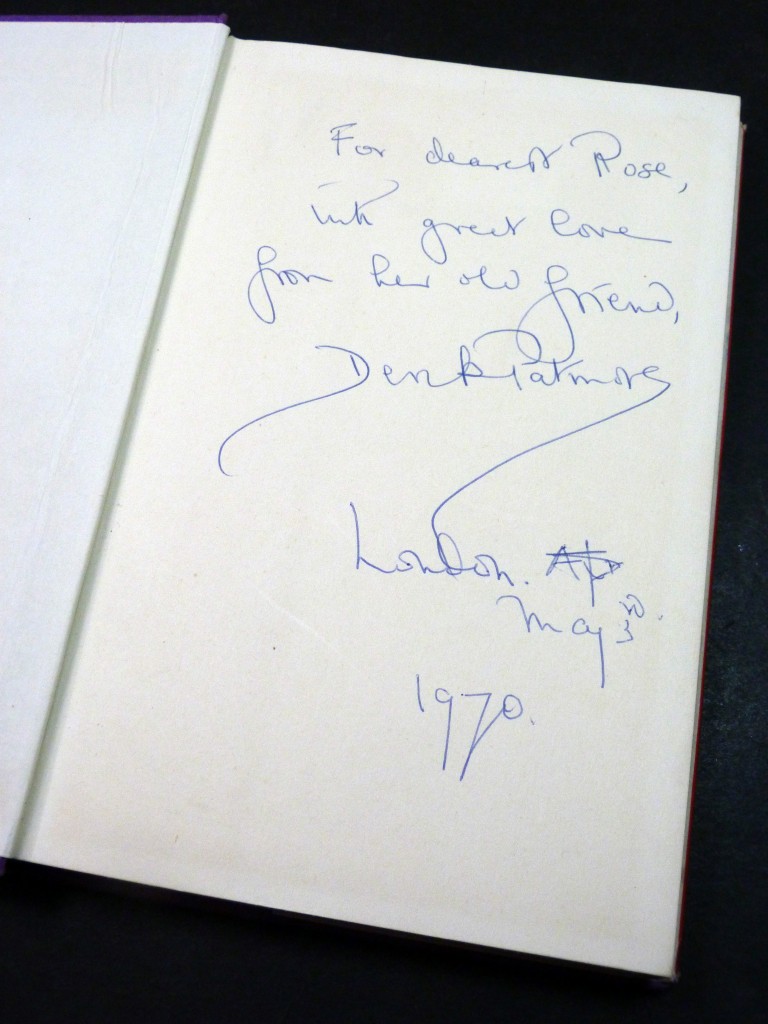 For dearest Rose,
with great love
from her old friend,
Derek Patmore
London. Ap
May 3rd.
1970.